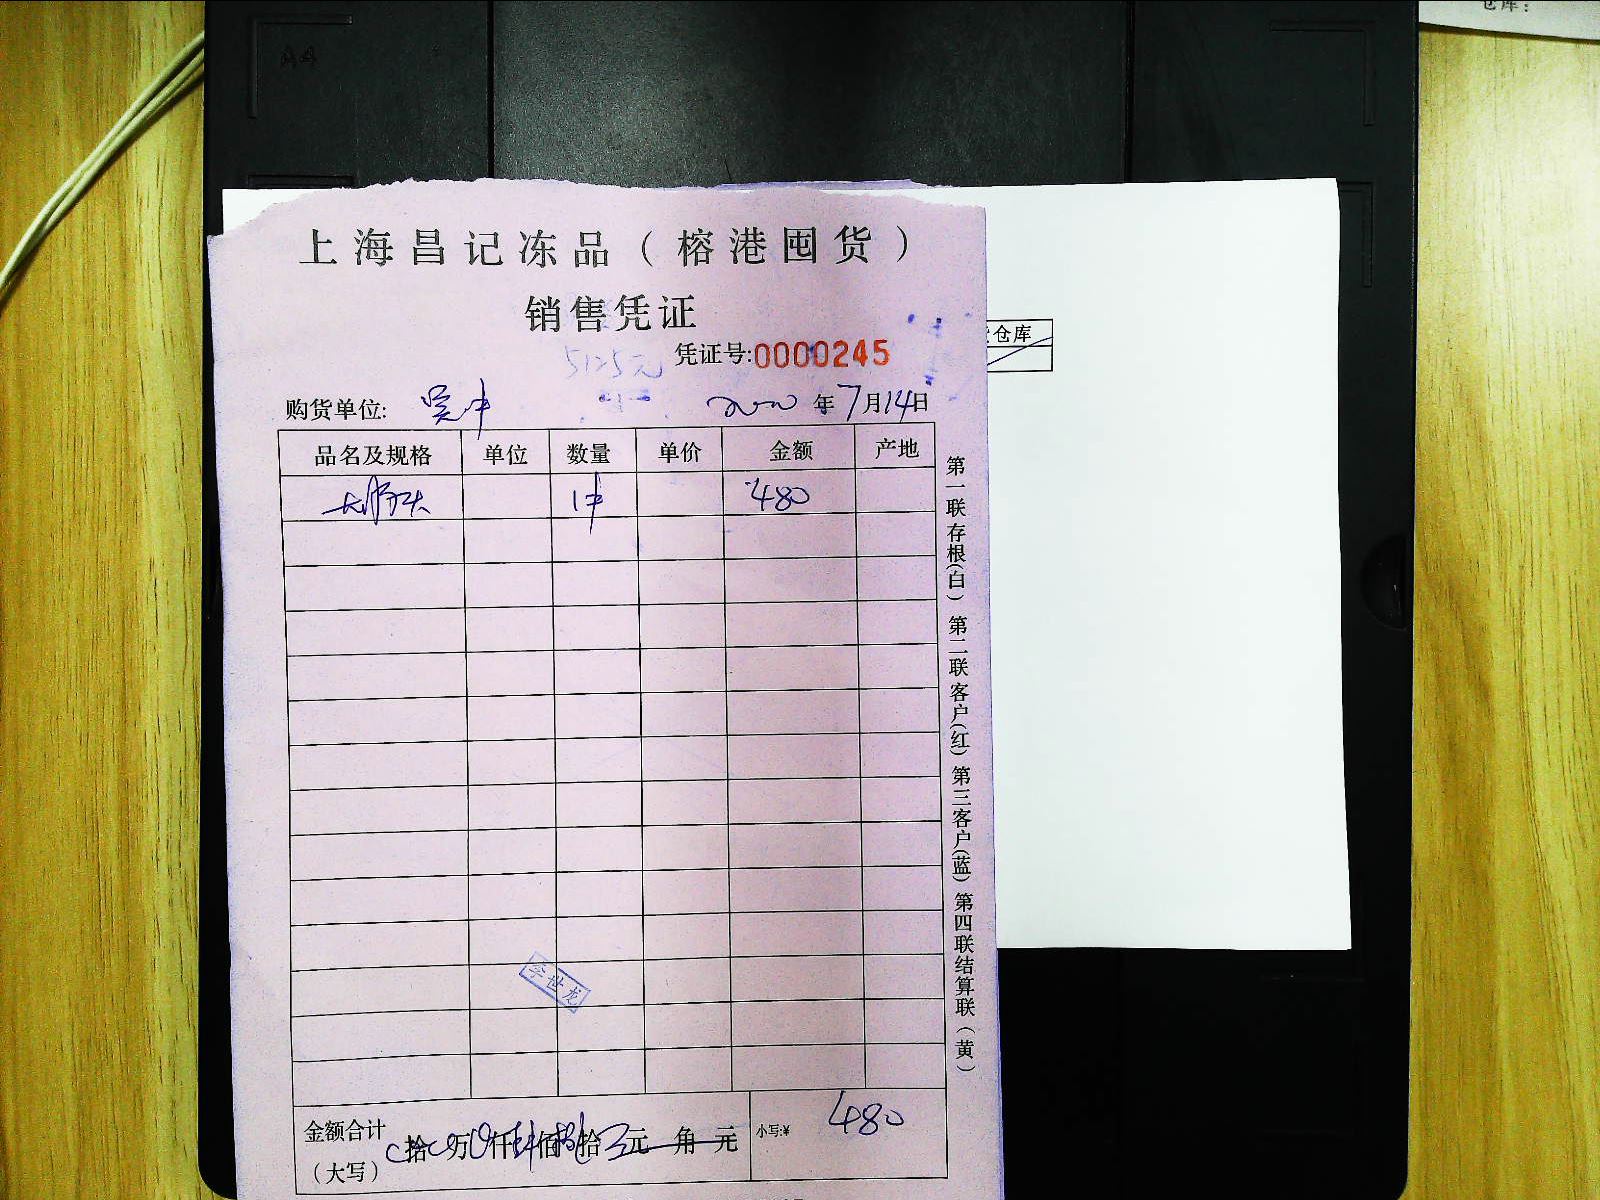 仓库:
A4
上海昌记冻品（榕港囤货）
销售凭证
5125元 凭证号:0000245
仓库
购货单位: 吴中 2020年7月14日
品名及规格 单位 数量 单价 金额 产地
1件 480
第一联存根(白) 第二联客户(红) 第三客户(蓝) 第四联结算联(黄)
李世龙
金额合计 拾 万 仟 佰 拾 元 角 元 小写:¥ 480
（大写）